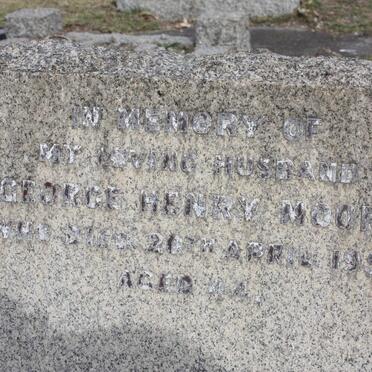 IN MEMORY OF
MY LOVING HUSBAND
GEORGE HENRY MOOR
WHO DIED 20TH APRIL 19
AGED 44.